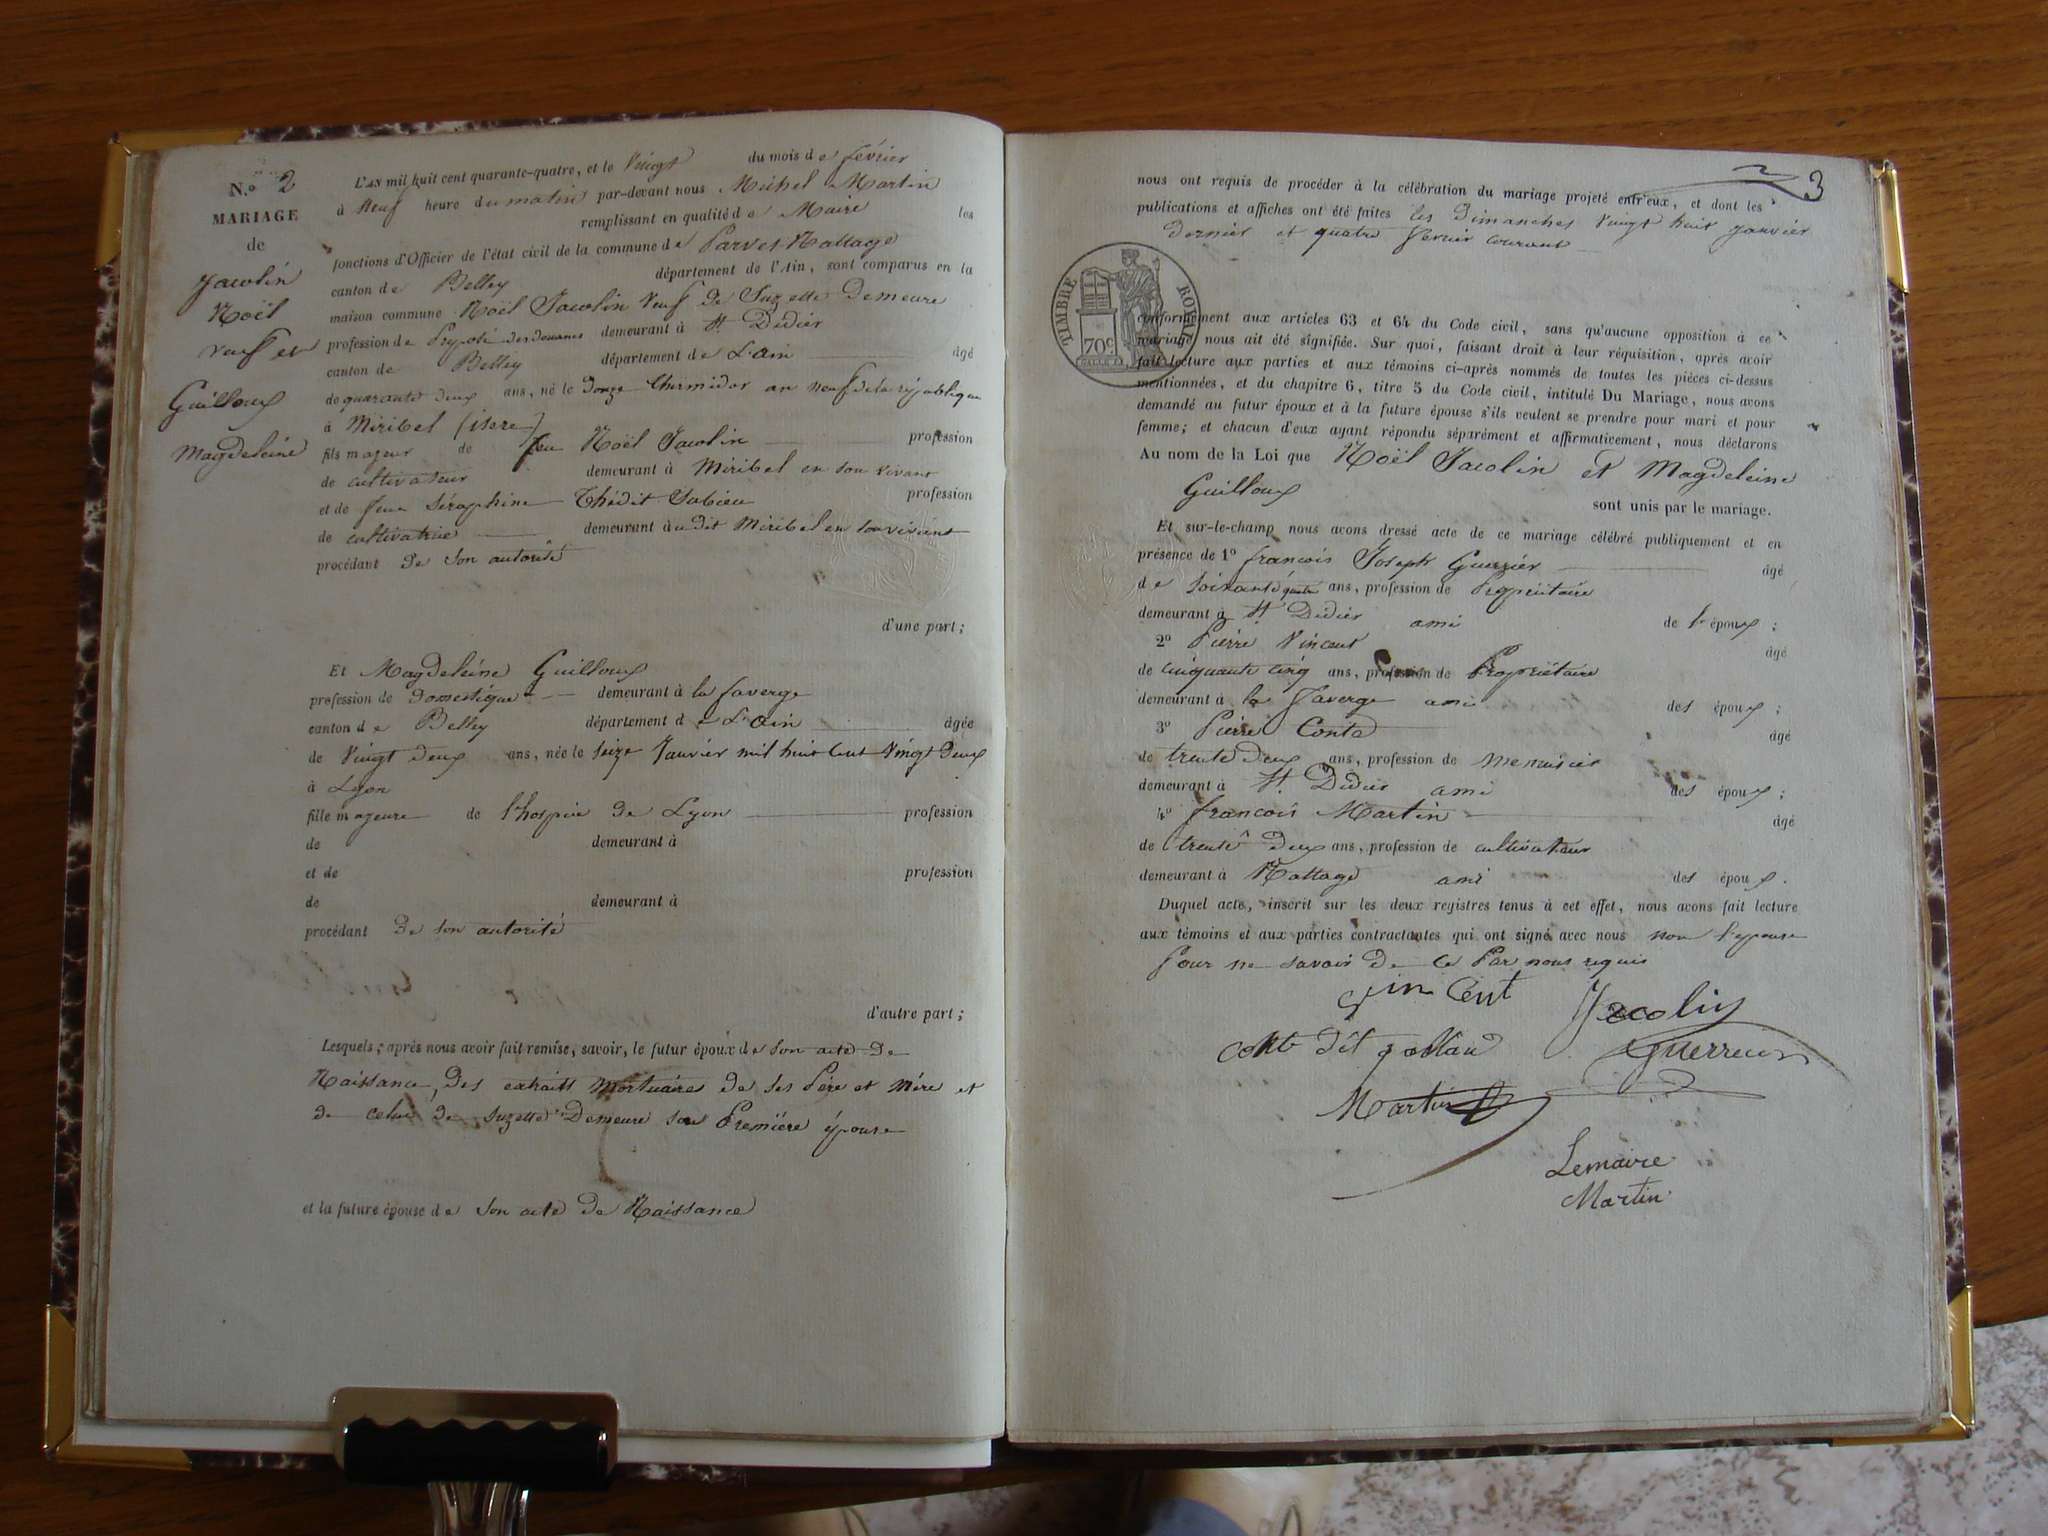 N.o 2
MARIAGE
de
Jacolin
Noël
veuf et
Guilloux
Magdeleine
L'AN mil huit cent quarante-quatre, et le Vingt du mois de février
à Neuf heure du matin par-devant nous Michel Martin
remplissant en qualité de Maire les
fonctions d'Officier de l'état civil de la commune de Parves Nattage
canton de Belley département de l'Ain, sont comparus en la
maison commune Noël Jacolin Veuf de Suzette Demeure
profession de Préposé des douanes demeurant à St Didier
canton de Belley département de L'ain âgé
de quarante deux ans, né le Donze thermidor an neuf de la république
à Miribel (isere)
fils majeur de feu Noël Jacolin profession
de cultivateur demeurant à Miribel en son vivant
et de feue Séraphine Thédit Jubieu profession
de cultivatrice demeurant au dit Miribel en son vivant
procédant de son autorité
d'une part;
Et Magdeleine Guilloux
profession de Domestique demeurant à la faverge
canton de Belley département de L'ain âgée
de Vingt deux ans, née le seize Janvier mil huit cent Vingt Deux
à Lyon
fille majeure de l'hospice de Lyon profession
de demeurant à
et de profession
de demeurant à
procédant de son autorité
d'autre part;
Lesquels, après nous avoir fait remise, savoir, le futur époux de son acte de
Naissance, des extraits mortuaires de ses Père et Mère et
de celui de suzette Demeure son Première épouse
et la future épouse de son acte de Naissance
3
nous ont requis de procéder à la célébration du mariage projeté entr'eux, et dont les
publications et affiches ont été faites les Dimanches Vingt huit janvier
dernier et quatre fevrier courant
TIMBRE ROYAL
70c
conformément aux articles 63 et 64 du Code civil, sans qu'aucune opposition à ce
mariage nous ait été signifiée. Sur quoi, faisant droit à leur réquisition, après avoir
fait lecture aux parties et aux témoins ci-après nommés de toutes les pièces ci-dessus
mentionnées, et du chapitre 6, titre 5 du Code civil, intitulé Du Mariage, nous avons
demandé au futur époux et à la future épouse s'ils veulent se prendre pour mari et pour
femme; et chacun d'eux ayant répondu séparément et affirmativement, nous déclarons
Au nom de la Loi que Noël Jacolin et Magdeleine
Guilloux
sont unis par le mariage.
Et sur-le-champ nous avons dressé acte de ce mariage célébré publiquement et en
présence de 1o francois Joseph Guerrier âgé
de soixante quatre ans, profession de Propriétaire
demeurant à St Didier ami de l'époux;
2o Pierre Vincent âgé
de cinquante cinq ans, profession de Propriétaire
demeurant à la Faverge ami des époux;
3o Pierre Conte âgé
de trente deux ans, profession de menuisier
demeurant à St Didier ami des époux;
4o francois Martin âgé
de trente deux ans, profession de cultivateur
demeurant à Nattage ami des époux.
Duquel acte, inscrit sur les deux registres tenus à cet effet, nous avons fait lecture
aux témoins et aux parties contractantes qui ont signé avec nous non l'epouse
Pour ne savoir de ce Par nous requis
vin Cent Jacolin
conte dit Guerrier
Martin
Lemaire
Martin